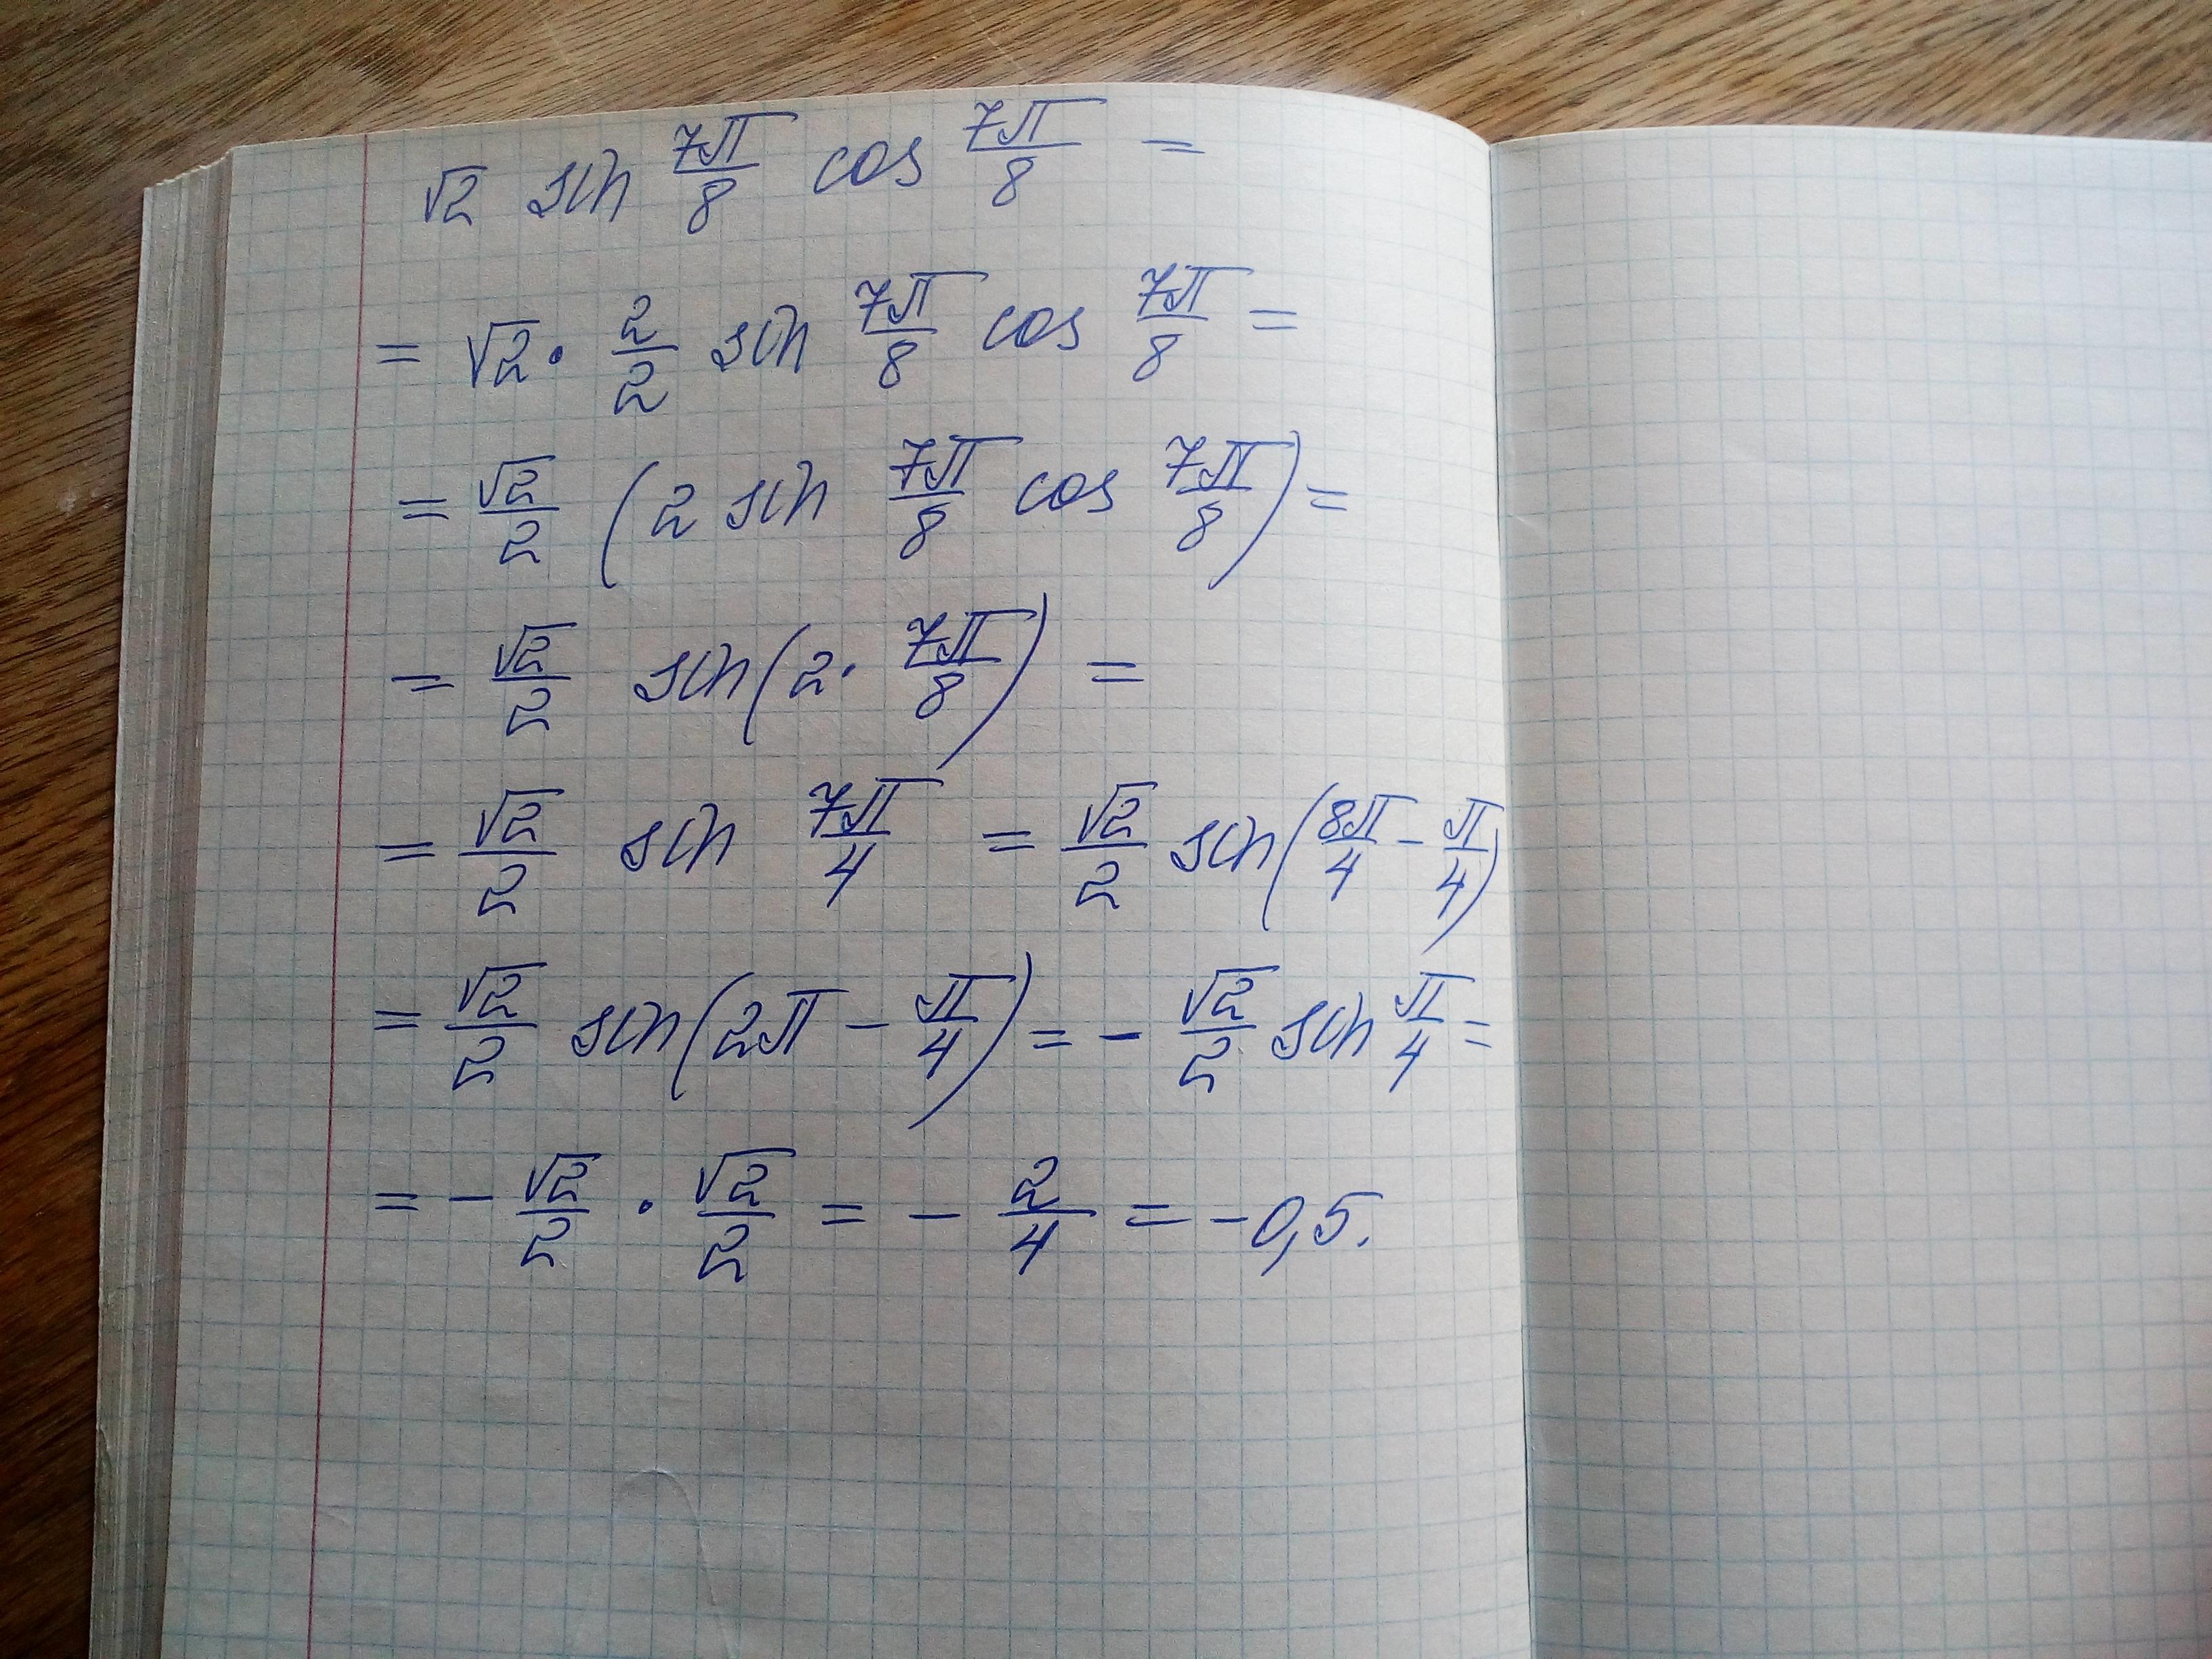 √2 sin 7π/8 cos 7π/8 =
= √2 · 2/2 sin 7π/8 cos 7π/8 =
= √2/2 (2 sin 7π/8 cos 7π/8) =
= √2/2 sin(2 · 7π/8) =
= √2/2 sin 7π/4 = √2/2 sin(8π/4 - π/4)
= √2/2 sin(2π - π/4) = - √2/2 sin π/4 =
= - √2/2 · √2/2 = - 2/4 = -0,5.